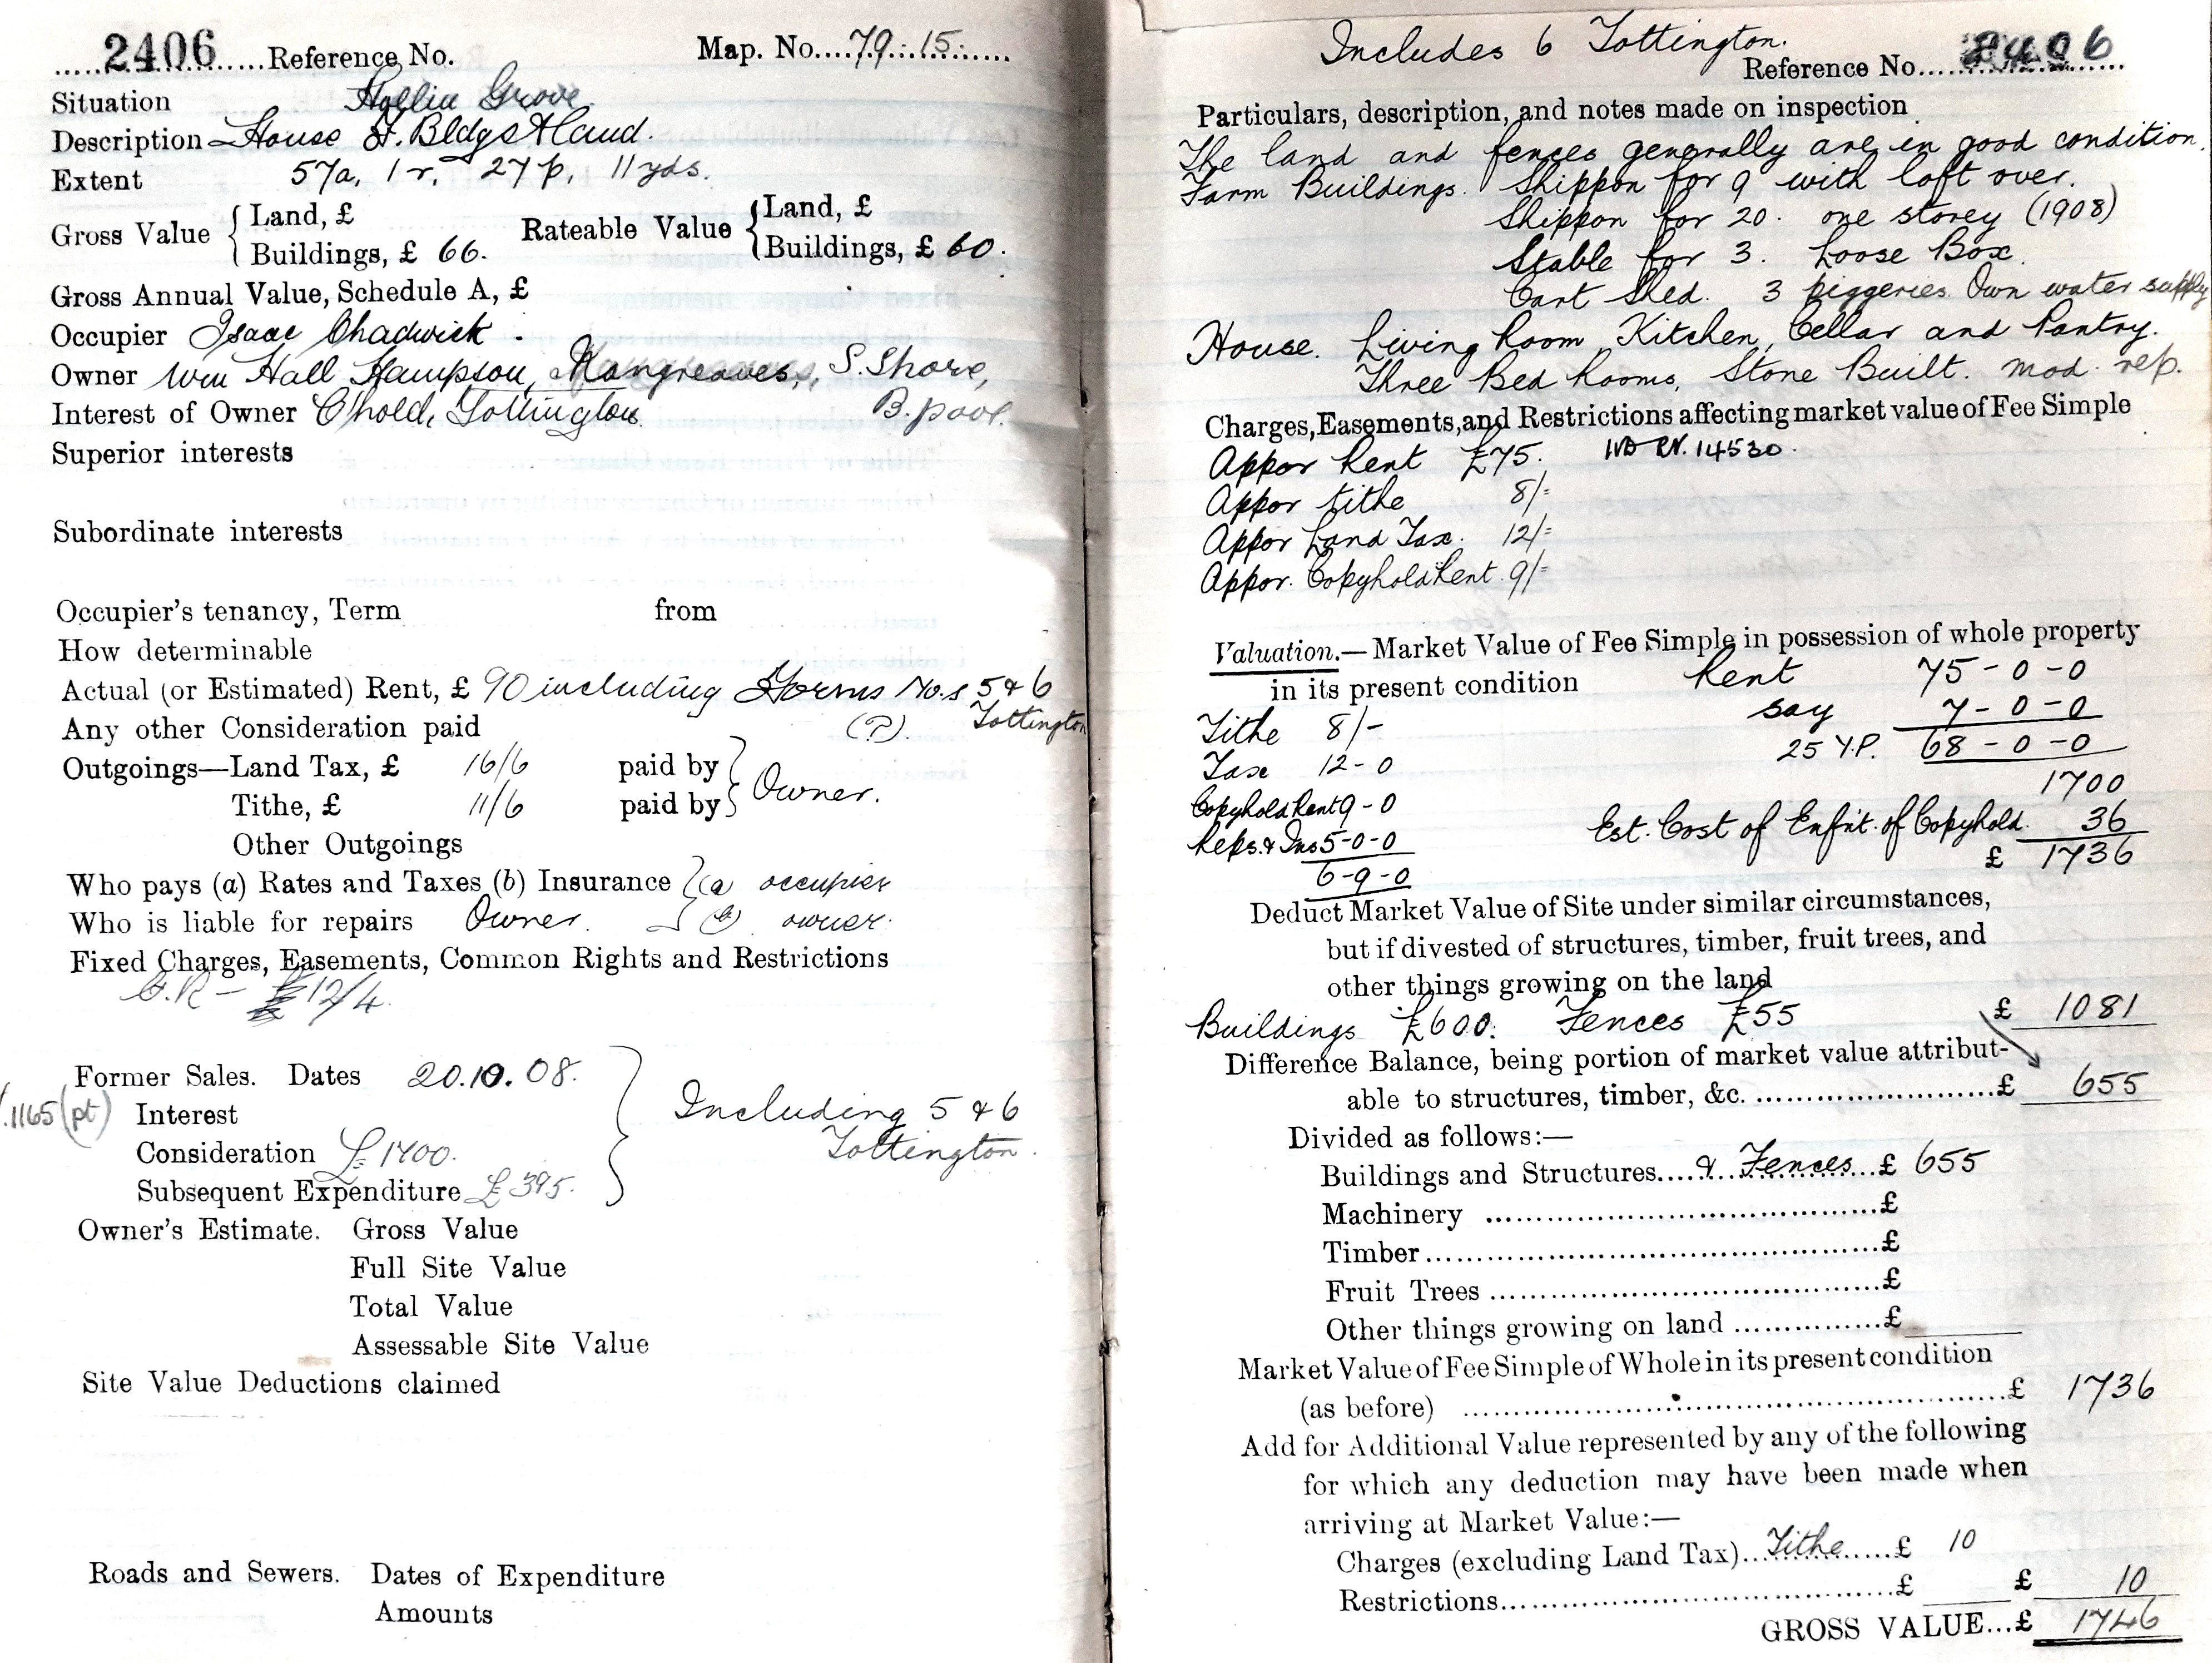 2406 Reference No. Map. No. 79.15.
Situation Hollin Grove.
Description House F. Bldgs & Land.
Extent 57a, 1 r, 27 p, 11 yds.
Gross Value { Land, £ Rateable Value { Land, £
Buildings, £ 66. Buildings, £ 60.
Gross Annual Value, Schedule A, £
Occupier Isaac Chadwick.
Owner Wm Hall Hampson, S. Shore,
Interest of Owner C'hold, Tottington. B.pool.
Superior interests
Subordinate interests
Occupier's tenancy, Term from
How determinable
Actual (or Estimated) Rent, £ 90 including Forms No.s 5 & 6
Any other Consideration paid (?). Tottington
Outgoings—Land Tax, £ 16/6 paid by } Owner.
Tithe, £ 11/6 paid by
Other Outgoings
Who pays (a) Rates and Taxes (b) Insurance { (a) occupier
Who is liable for repairs Owner. (b) owner.
Fixed Charges, Easements, Common Rights and Restrictions
G.R — 12/4.
Former Sales. Dates 20.10.08.
1165 (pt) Interest Including 5 & 6
Consideration £1400. Tottington.
Subsequent Expenditure £395.
Owner's Estimate. Gross Value
Full Site Value
Total Value
Assessable Site Value
Site Value Deductions claimed
Roads and Sewers. Dates of Expenditure
Amounts
Includes 6 Tottington.
Reference No. 2406
Particulars, description, and notes made on inspection
The land and fences generally are in good condition.
Farm Buildings. Shippon for 9 with loft over.
Shippon for 20. one storey (1908)
Stable for 3. Loose Box.
Cart Shed. 3 piggeries. Own water supply
House. Living Room, Kitchen, Cellar and Pantry.
Three Bed Rooms, Stone Built. mod. rep.
Charges, Easements, and Restrictions affecting market value of Fee Simple
Appor Rent £75. 14530.
Appor tithe 8/=
Appor Land Tax. 12/=
Appor. Copyhold Rent. 9/=
Valuation.—Market Value of Fee Simple in possession of whole property
in its present condition Rent 75-0-0
Tithe 8/- say 7-0-0
Tax 12-0 25 Y.P. 68-0-0
1700
Copyhold Rent 9-0 Est. Cost of Enfnt. of Copyhold. 36
Reps. & Ins 5-0-0 £ 1736
6-9-0
Deduct Market Value of Site under similar circumstances,
but if divested of structures, timber, fruit trees, and
other things growing on the land
Buildings £600. Fences £55 £ 1081
Difference Balance, being portion of market value attribut-
able to structures, timber, &c. £ 655
Divided as follows:—
Buildings and Structures & Fences £ 655
Machinery £
Timber £
Fruit Trees £
Other things growing on land £
Market Value of Fee Simple of Whole in its present condition
(as before) £ 1736
Add for Additional Value represented by any of the following
for which any deduction may have been made when
arriving at Market Value:—
Charges (excluding Land Tax) Tithe £ 10
Restrictions £ £ 10
GROSS VALUE...£ 1746